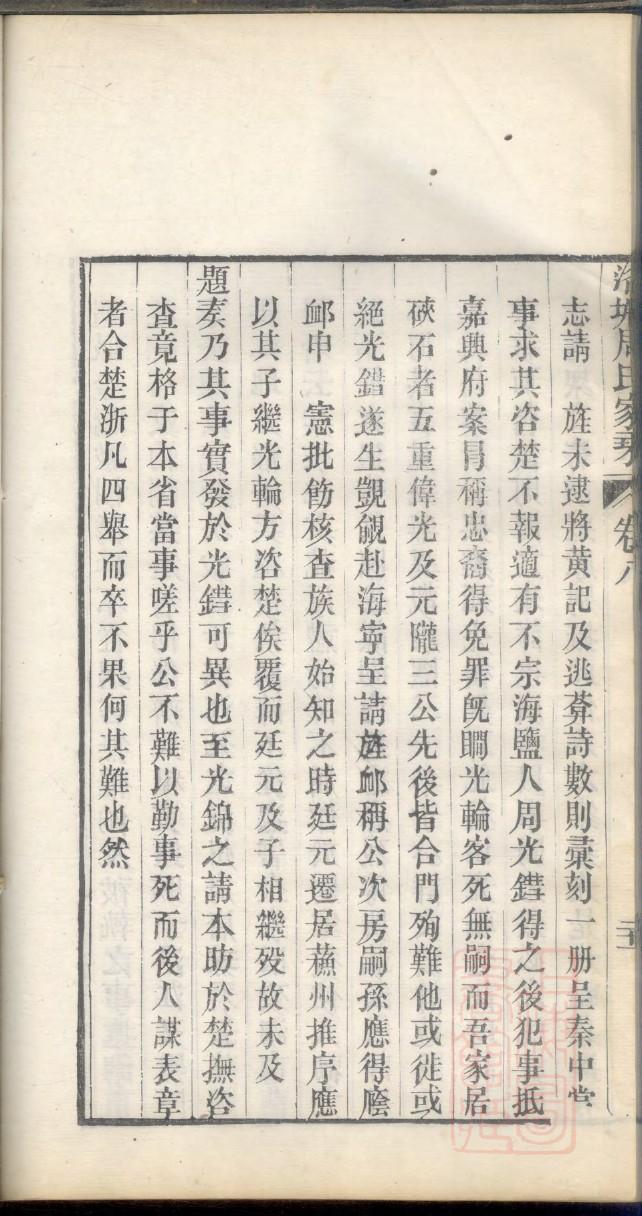 洛塘周氏家乘 卷八
志請 旌未逮將黄記及逃葊詩數則彙刻一册呈秦中堂
事求其咨楚不報適有不宗海鹽人周光錯得之後犯事抵
嘉興府案冐稱忠裔得免罪旣瞷光輪客死無嗣而吾家居
硤石者五重偉光及元隴三公先後皆合門殉難他或徙或
絶光錯遂生覬覦赴海寧呈請旌卹稱公次房嗣孫應得廕
卹申 憲批飭核查族人始知之時廷元遷居蘓州推序應
以其子繼光輪方咨楚俟覆而廷元及子相繼歿故未及
題奏乃其事實發於光錯可異也至光錦之請本昉於楚撫咨
查竟格于本省當事嗟乎公不難以勤事死而後人謀表章
者合楚浙凡四舉而卒不果何其難也然